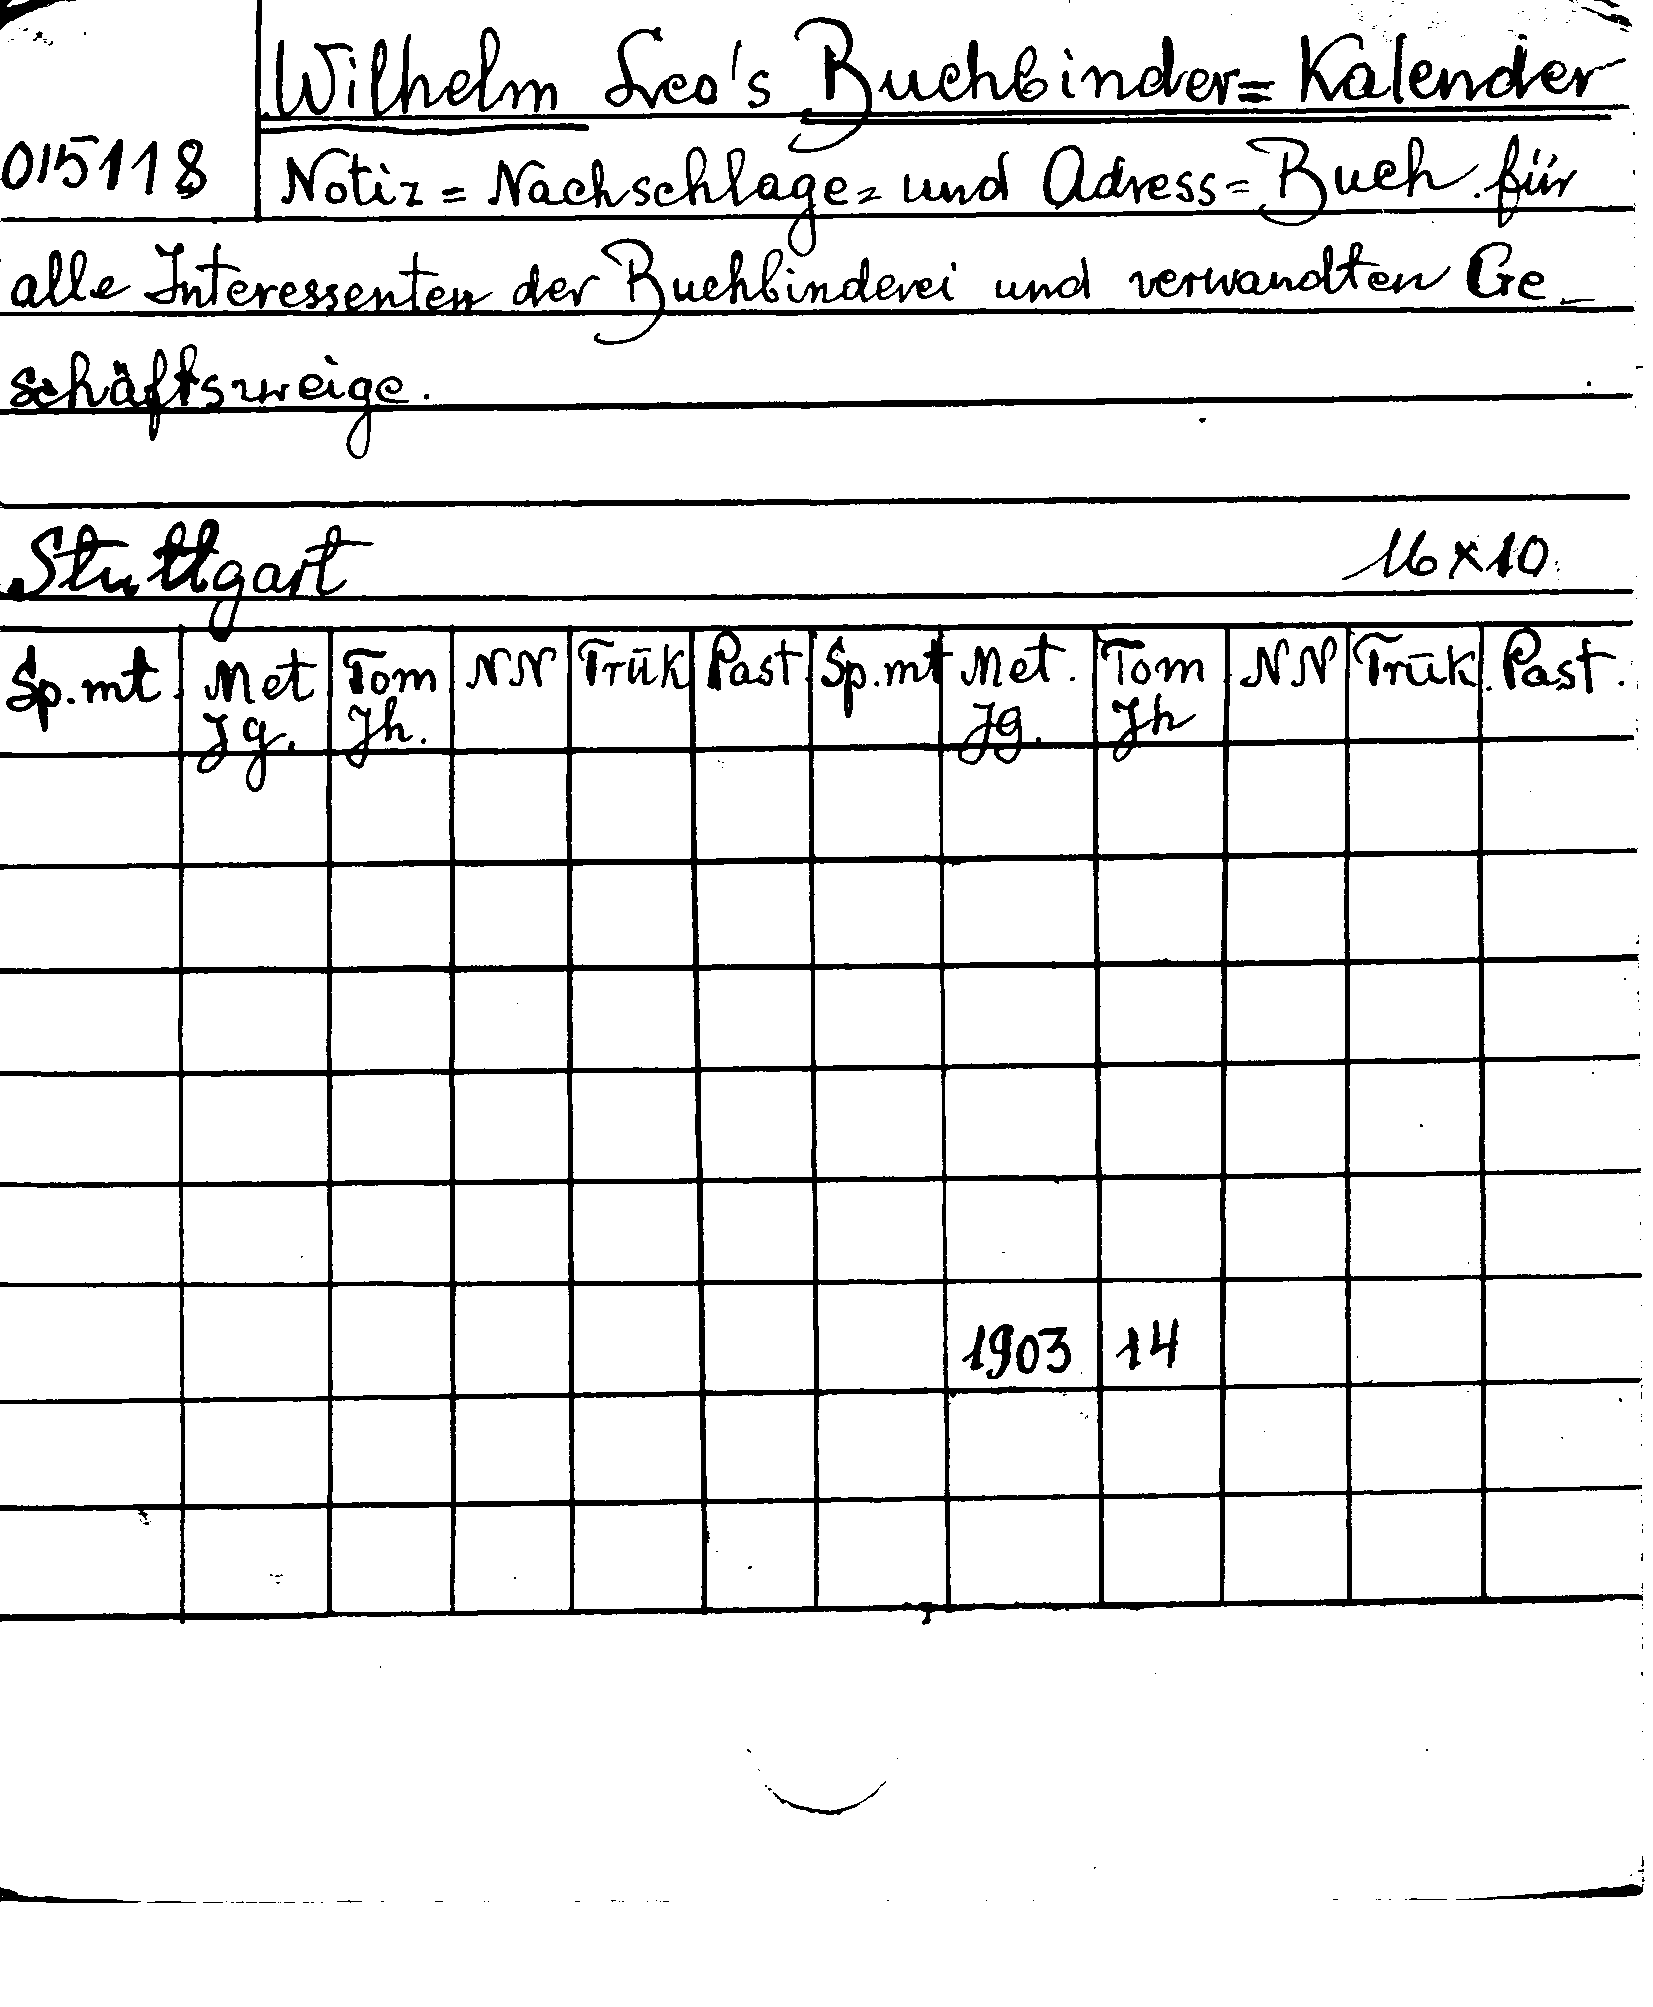 Wilhelm Leo's Buchbinder=Kalender
015118
Notiz=Nachschlage= und Adress=Buch. für
alle Interessenten der Buchbinderei und verwandten Ge_
schäftszweige.
Stuttgart 16×10
Sp.mt. Met Jg. Tom Jh. NN Trūk Past. Sp.mt Met. Jg. Tom Jh NN Trūk. Past.
1903 14